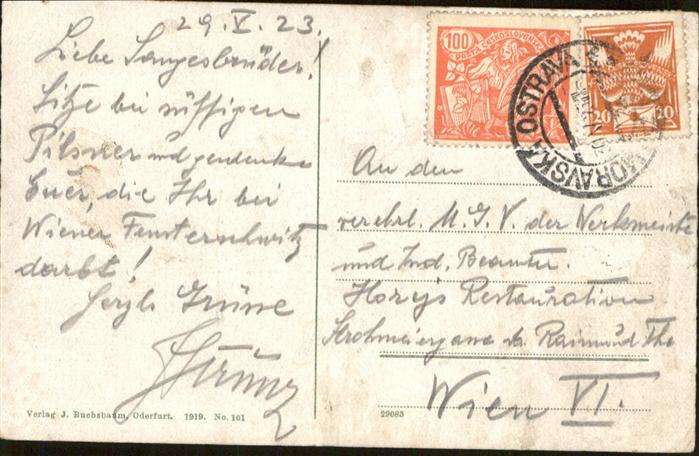 29. V. 23.
Liebe Sangesbrüder!
Sitze bei süffigen
Pilsner und gendenke
Euer, die Ihr bei
Wiener Fensterschwitz
darbt!
Herzl. Grüße
An den
verehrl. M. G. V. der Werkmeister
und Ind. Beamten.
Restauration
Raimund Th.
Wien VI.
100
POŠTA ČESKOSLOVENSKÁ
20 20
MORAVSKÁ OSTRAVA
Verlag J. Buchsbaum, Oderfurt. 1919. No. 101
29085